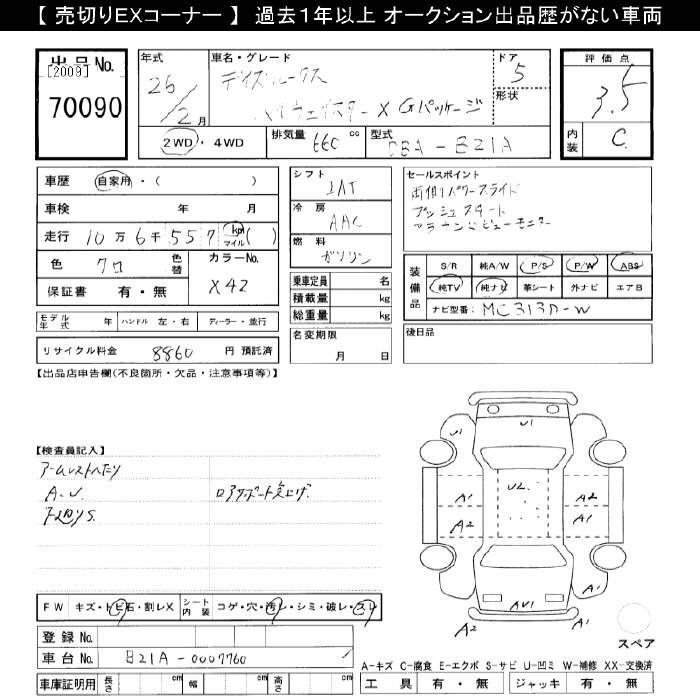 【 売切りEXコーナー 】 過去１年以上 オークション出品歴がない車両
出品No.
[2009]
70090
年式
26/2月
車名・グレード
デイズルークス
ハイウェイスター X Gパッケージ
ドア
5
形状
評価点
3.5
内装
C
2WD・4WD
排気量 660 cc
型式 DBA-B21A
車歴 自家用・( )
車検 年 月
走行 10万6千557 km マイル ( )
色 クロ 色替 カラーNo. X42
保証書 有・無
モデル年式 年 ハンドル 左・右 ディーラー・並行
リサイクル料金 8860 円 預託済
シフト
IAT
冷房
AAC
燃料
ガソリン
乗車定員 名
積載量 kg
総重量 kg
名変期限
月 日
セールスポイント
両側パワースライド
プッシュスタート
アラウンドビューモニター
装備品
S/R 純A/W P/S P/W ABS
純TV 純ナビ 革シート 外ナビ エアB
ナビ型番 MC313D-W
後日品
【出品店申告欄(不良個所・欠品・注意事項等)】
【検査員記入】
アームレストヘたり
A.U.
ロアサポート突上げ
FW キズ・トビ石・割レX シート内装 コゲ・穴・汚レ・シミ・破レ・スレ
登録No.
車台No. B21A-0007760
車庫証明用 長さ cm 幅 cm 高さ cm
U1
U1
U2
A1
A2
A2
A1
A1
AU1
A2
A1
スペア
A-キズ C-腐食 E-エクボ S-サビ U-凹ミ W-補修 XX-交換済
工具 有・無 ジャッキ 有・無